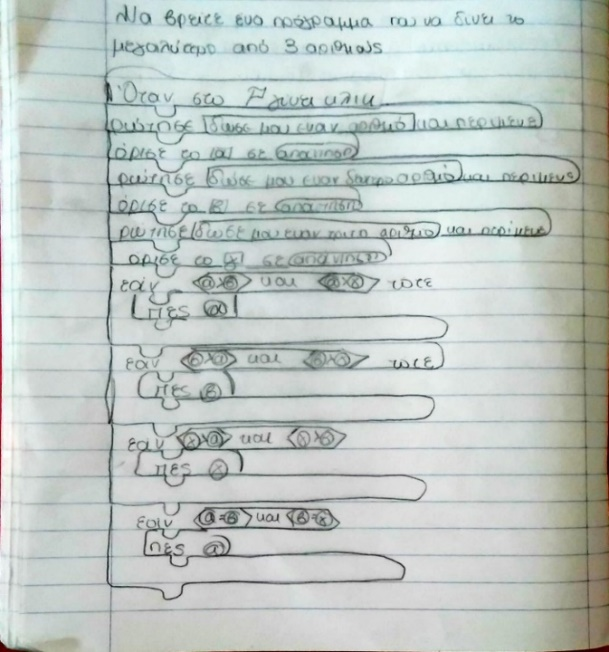 Να βρειτε ενα πρόγραμμα που να δινει το
μεγαλύτερο από 3 αριθμους
Όταν στο γινει κλικ
ρώτησε δωσε μου εναν αριθμό και περιμενε
όρισε το α σε απαντηση
ρώτησε δωσε μου εναν δευτερο αριθμό και περιμενε
όρισε το β σε απαντηση
ρωτησε δωσε μου εναν τριτο αριθμο και περιμενε
ορισε το γ σε απαντηση
εαν α>β και α>γ τοτε
πες α
εαν β>α και β>γ τοτε
πες β
εαν γ>α και γ>β
πες γ
εαν α=β και β=γ
πες α